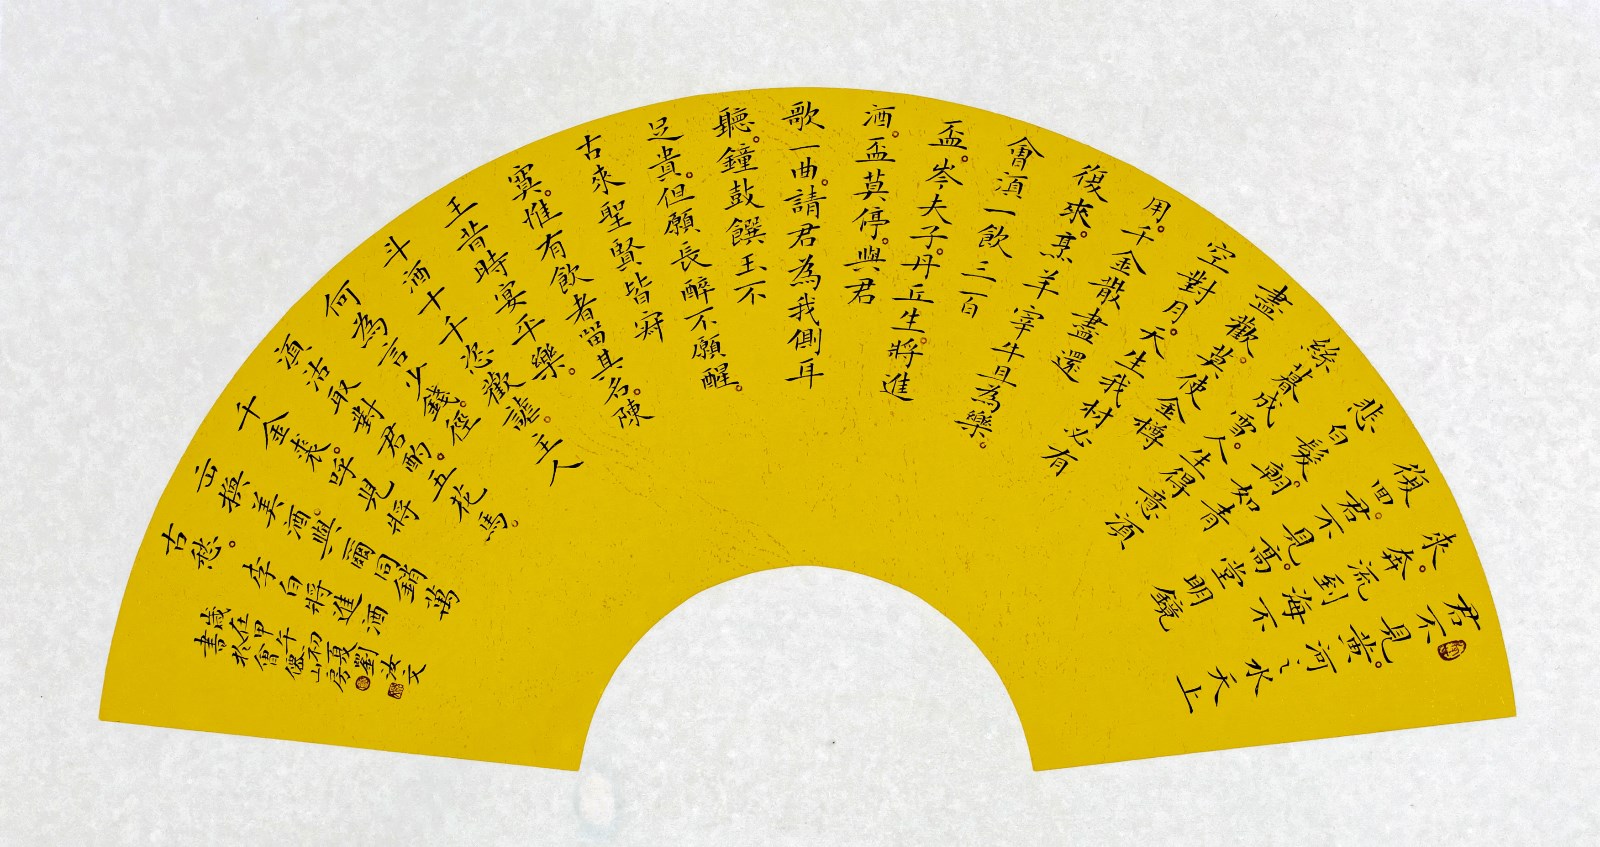 君不見。黃河〻水天上
來。奔流到海不
復回。君不見。高堂明鏡
悲白髮。朝如青
絲暮成雪。人生得意須
盡歡。莫使金樽
空對月。天生我材必有
用。千金散盡還
復來。烹羊宰牛且為樂。
會須一飲三百
盃。岑夫子。丹丘生。將進
酒。盃莫停。與君
歌一曲。請君為我側耳
聽。鐘鼓饌玉不
足貴。但願長醉不願醒。
古來聖賢皆寂
寞。惟有飲者留其名。陳
王昔時宴平樂。
斗酒十千恣歡謔。主人
何為言少錢。徑
須沽取對君酌。五花馬。
千金裘。呼兒將
出換美酒。與爾同銷萬
古愁。李白將進酒
歲在甲午初夏劉汝文
書於會僊山房